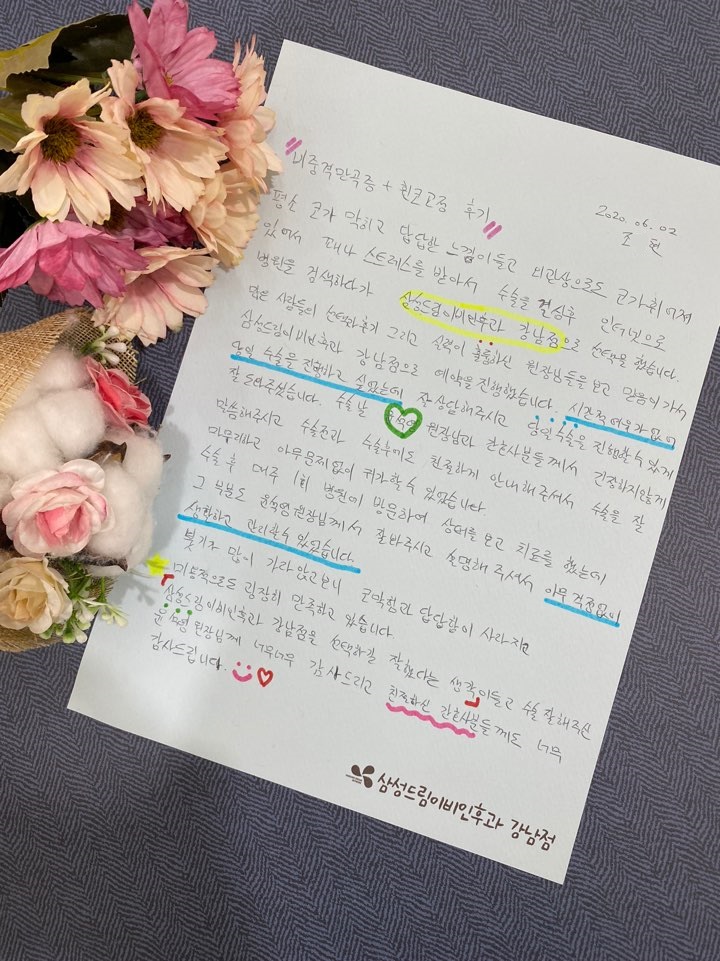 "비중격만곡증 + 휜코교정 후기"
2020. 06. 02
조 현
평소 코가 막히고 답답한 느낌이들고 미관상으로도 코가휘어져
있어서 꽤나 스트레스를 받아서 수술을 결심후 인터넷으로
병원을 검색하다가 삼성드림이비인후과 강남점으로 선택을 했습니다.
많은 사람들의 선택과후기 그리고 실력이 훌륭하신 원장님들을 보고 믿음이가서
삼성드림이비인후과 강남점으로 예약을 진행했습니다. 시간적여유가없어
당일 수술을 진행하고 싶었는데 잘상담해주시고 당일수술을 진행할수있게
잘 도와주셨습니다. 수술날 윤석영 원장님과 간호사분들께서 긴장하지않게
말씀해주시고 수술전과 수술후에도 친절하게 안내해주셔서 수술을 잘
마무리하고 아무문제없이 귀가할수 있었습니다
수술 후 매주 1회 병원에 방문하여 상태를 보고 치료를 했는데
그 부분도 윤석영원장님께서 잘봐주시고 설명해 주셔서 아무 걱정없이
생활하고 관리할수 있었습니다.
붓기가 많이 가라앉고보니 코막힘과 답답함이 사라지고
미용적으로도 굉장히 만족하고 있습니다.
삼성드림이비인후과 강남점을 선택하길 잘했다는 생각이들고 수술잘해주신
윤석영원장님께 너무너무 감사드리고 친절하신 간호사분들께도 너무
감사드립니다.
삼성드림이비인후과 강남점